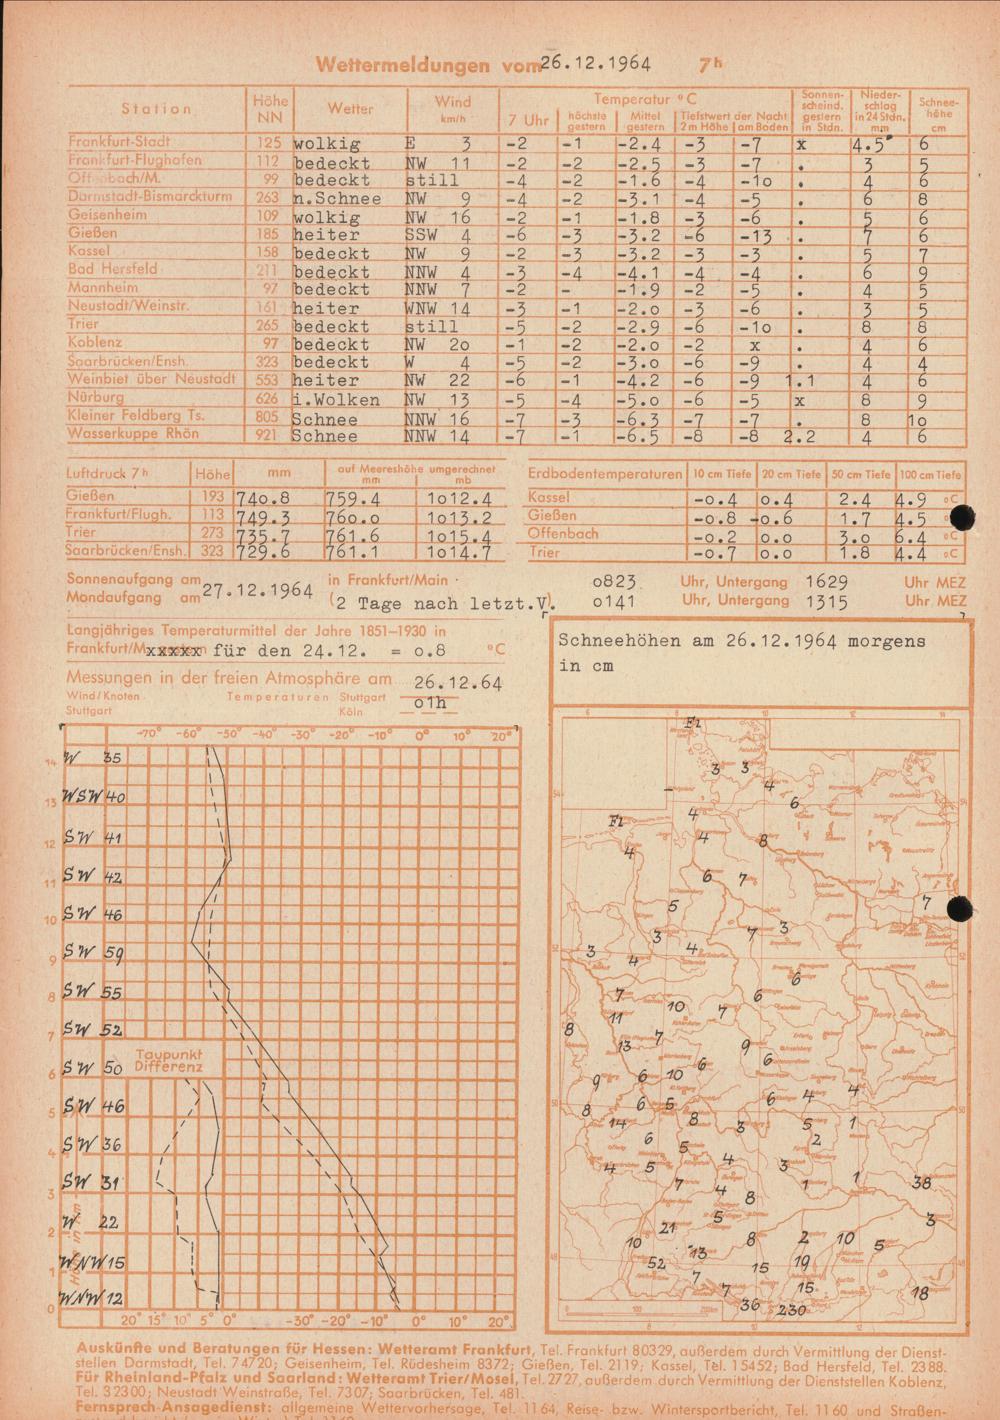 Wettermeldungen vom 26.12.1964 7h
Station Höhe NN Wetter Wind km/h Temperatur °C Sonnenscheind. gestern in Stdn. Niederschlag in 24 Stdn. mm Schneehöhe cm
7 Uhr höchste gestern Mittel gestern Tiefstwert der Nacht 2 m Höhe am Boden
Frankfurt-Stadt 125 wolkig E 3 -2 -1 -2.4 -3 -7 x 4.5 6
Frankfurt-Flughafen 112 bedeckt NW 11 -2 -2 -2.5 -3 -7 . 3 5
Offenbach/M. 99 bedeckt still -4 -2 -1.6 -4 -1o . 4 6
Darmstadt-Bismarckturm 263 n.Schnee NW 9 -4 -2 -3.1 -4 -5 . 6 8
Geisenheim 109 wolkig NW 16 -2 -1 -1.8 -3 -6 . 5 6
Gießen 185 heiter SSW 4 -6 -3 -3.2 -6 -13 . 7 6
Kassel 158 bedeckt NW 9 -2 -3 -3.2 -3 -3 . 5 7
Bad Hersfeld 211 bedeckt NNW 4 -3 -4 -4.1 -4 -4 . 6 9
Mannheim 97 bedeckt NNW 7 -2 - -1.9 -2 -5 . 4 5
Neustadt/Weinstr. 161 heiter WNW 14 -3 -1 -2.o -3 -6 . 3 5
Trier 265 bedeckt still -5 -2 -2.9 -6 -1o . 8 8
Koblenz 97 bedeckt NW 2o -1 -2 -2.o -2 x . 4 6
Saarbrücken/Ensh. 323 bedeckt W 4 -5 -2 -3.o -6 -9 . 4 4
Weinbiet über Neustadt 553 heiter NW 22 -6 -1 -4.2 -6 -9 1.1 4 6
Nürburg 626 i.Wolken NW 13 -5 -4 -5.o -6 -5 x 8 9
Kleiner Feldberg Ts. 805 Schnee NNW 16 -7 -3 -6.3 -7 -7 . 8 1o
Wasserkuppe Rhön 921 Schnee NNW 14 -7 -1 -6.5 -8 -8 2.2 4 6
Luftdruck 7h Höhe mm auf Meereshöhe umgerechnet mm mb
Gießen 193 74o.8 759.4 1o12.4
Frankfurt/Flugh. 113 749.3 76o.o 1o13.2
Trier 273 735.7 761.6 1o15.4
Saarbrücken/Ensh. 323 729.6 761.1 1o14.7
Erdbodentemperaturen 10 cm Tiefe 20 cm Tiefe 50 cm Tiefe 100 cm Tiefe
Kassel -o.4 o.4 2.4 4.9 °C
Gießen -o.8 -o.6 1.7 4.5
Offenbach -o.2 o.o 3.o 6.4 °C
Trier -o.7 o.o 1.8 4.4 °C
Sonnenaufgang am 27.12.1964 in Frankfurt/Main o823 Uhr, Untergang 1629 Uhr MEZ
Mondaufgang am (2 Tage nach letzt.V). o141 Uhr, Untergang 1315 Uhr MEZ
Langjähriges Temperaturmittel der Jahre 1851–1930 in
Frankfurt/M xxxxx für den 24.12. = o.8 °C
Messungen in der freien Atmosphäre am 26.12.64
Wind/Knoten Temperaturen Stuttgart o1h
Stuttgart Köln
-70° -60° -50° -40° -30° -20° -10° 0° 10° 20°
14 W 35
13 WSW 40
12 SW 41
11 SW 42
10 SW 46
9 SW 59
8 SW 55
7 SW 52
6 SW 50
Taupunkt
Differenz
5 SW 46
4 SW 36
3 SW 31
2 W 22
1 WNW 15
0 WNW 12
Höhe in km
20° 15° 10° 5° 0° -30° -20° -10° 0° 10° 20°
Schneehöhen am 26.12.1964 morgens
in cm
Fl
3 3
4
6
4
Fl
4 4 8
6 7
5 7
3 4 7 3
3 4
6
7 10 7 6
8 11
13 7 9
6 6
9 6 10
8 6 5 6 4 4
14 8 3 5 1
6 5 2
4 5 4 3
7 4 8 1 1 38
21 5 3
10 8 2 10 5
52 13 15 19
7 7 15 18
36 230
Auskünfte und Beratungen für Hessen: Wetteramt Frankfurt, Tel. Frankfurt 80329, außerdem durch Vermittlung der Dienst-
stellen Darmstadt, Tel. 74720; Geisenheim, Tel. Rüdesheim 8372; Gießen, Tel. 2119; Kassel, Tel. 15452; Bad Hersfeld, Tel. 2388.
Für Rheinland-Pfalz und Saarland: Wetteramt Trier/Mosel, Tel. 2727, außerdem durch Vermittlung der Dienststellen Koblenz,
Tel. 32300; Neustadt Weinstraße, Tel. 7307; Saarbrücken, Tel. 481.
Fernsprech-Ansagedienst: allgemeine Wettervorhersage, Tel. 1164, Reise- bzw. Wintersportbericht, Tel. 1160 und Straßen-